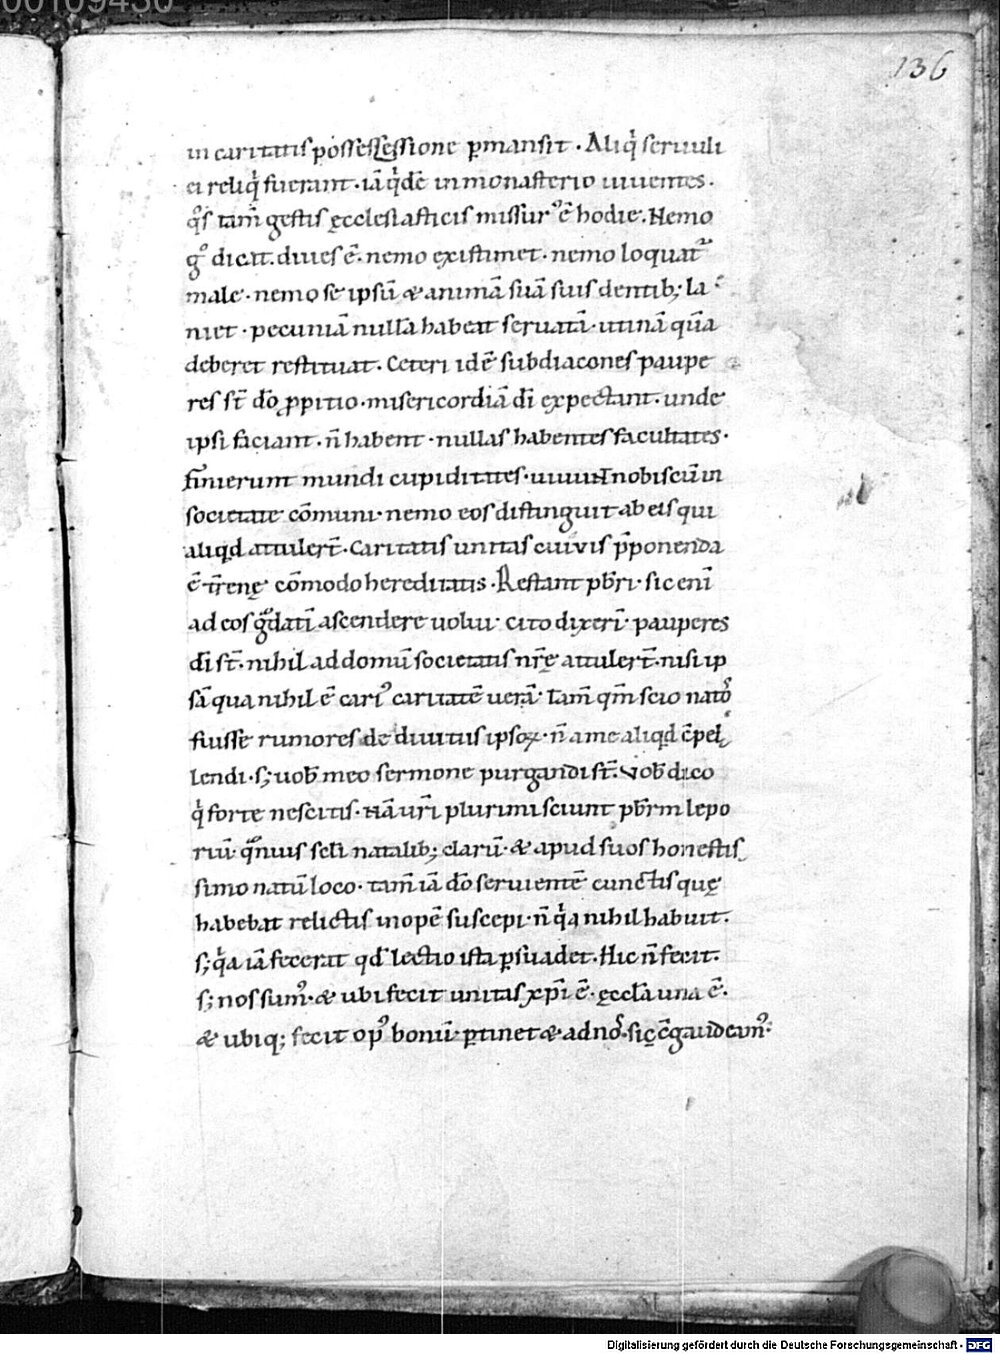 00109430
136
in caritatis possessessione ꝑmansit · Aliq̇ seruuli
ei reliq̇ fuerant · iā q̇dē in monasterio uiuentes ·
q̊s tam̄ gestis ęcclesiasticis missurꝰ ē hodie · Nemo
g̊ dicat · diues ē · nemo existimet · nemo loquat᷑
male · nemo se ipsū & animā suā suis dentib; la
niet · pecuniā nullā habeat seruatā · utinā quā
deberet restituat · Ceteri idē subdiacones paupe
res st̄ dō ꝓpitio · misericordiā dī expectant · unde
ipsi faciant · n̄ habent · nullas habentes facultates ·
finierunt mundi cupiditates · uiuunt nobiscū in
societate cōmuni · nemo eos distinguit ab eis qui
aliqd attulert̄ · Caritatis unitas cuivis p̄ponenda
ē t̄renę cōmodo hereditatis · Restant pb̄ri · sic eni
ad eos g̊datī ascendere uolui · cito dixeri · pauperes
dī st̄ · nihil ad domū societatis nr̄ę attulert̄ · nisi ip
sā qua nihil ē cariꝰ caritatē uerā · Tam̄ qm̄ scio nato
fuisse rumores de diuitiis ipsoꝝ · n̄ a me aliqd c̄pel
lendi · s; uob̄ meo sermone purgandi st̄ · Vob̄ dico
q̇ forte nescitis · Nā ur̄i plurimi sciunt pb̄rm lepo
riū q̊nuis sc̄li natalib; clarū · & apud suos honestis
simo natū loco · tam̄ iā dō seruientē cunctis quę
habebat relictis inopē suscepi · n̄ q̇a nihil habuit ·
s; q̇a iā fecerat qd̄ lectio ista ꝑsuadet · Hic n̄ fecit ·
s; nos sumꝰ · & ubi fecit unitas xp̄i ē · ęccl̄a una ē ·
& ubiq; fecit opꝰ bonū · ꝑtinet & ad nos · si c̄gaudeamꝰ ·
Digitalisierung gefördert durch die Deutsche Forschungsgemeinschaft - DFG